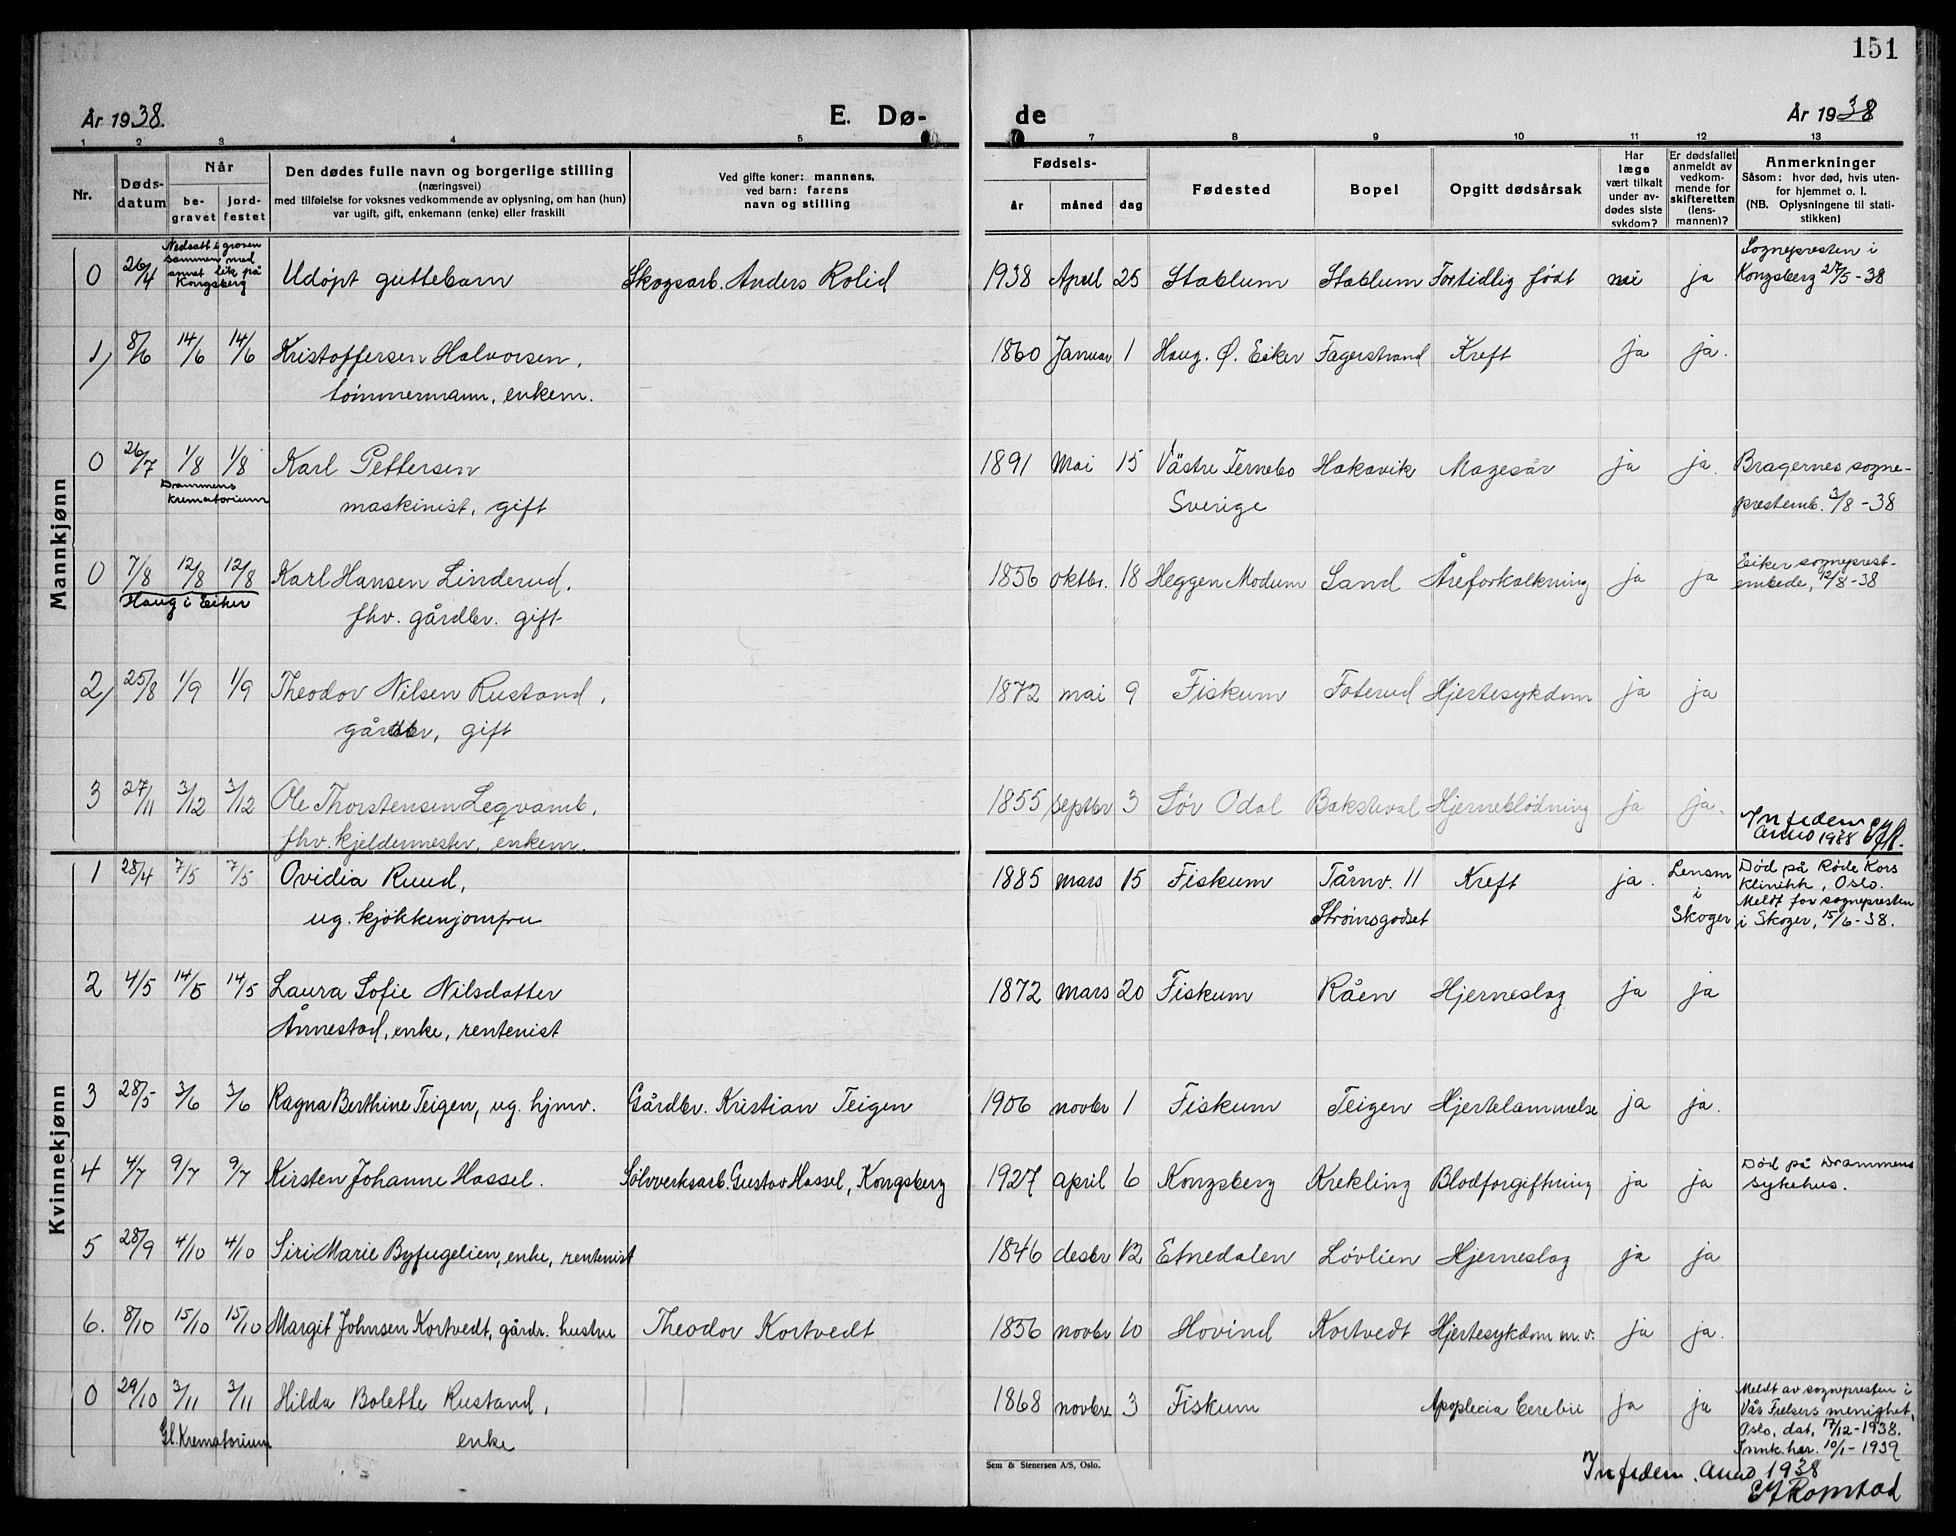 151
År 1938.
E. Dø-
de
År 1938
1 2 3 4 5 7 8 9 10 11 12 13
Nr.
Døds-
datum
Når
be-
gravet
jord-
festet
Den dødes fulle navn og borgerlige stilling
(næringsvei)
med tilføielse for voksnes vedkommende av oplysning, om han (hun)
var ugift, gift, enkemann (enke) eller fraskilt
Ved gifte koner: mannens,
ved barn: farens
navn og stilling
Fødsels-
år måned dag
Fødested
Bopel
Opgitt dødsårsak
Har
læge
vært tilkalt
under av-
dødes siste
sykdom?
Er dødsfallet
anmeldt av
vedkom-
mende for
skifteretten
(lens-
mannen)?
Anmerkninger
Såsom: hvor død, hvis uten-
for hjemmet o. l.
(NB. Oplysningene til stati-
stikken)
Mannkjønn
Nedsatt i graven
sammen med
annet lik på
Kongsberg
0 26/4 Udøpt guttebarn Skogsarb. Anders Rolid 1938 April 25 Stablum Stablum Fortidlig født nei ja
Sognepresten i
Kongsberg 27/5-38
1) 8/6 14/6 14/6 Kristoffersen Halvorsen, 1860 Januar 1 Haug. Ø. Eiker Fagerstrand Kreft ja ja.
tømmermann, enkem.
0 26/7 1/8 1/8 Karl Pettersen 1891 Mai 15 Västre Ternebo Hakavik Magesår ja ja. Bragernes sogne-
Drammens
krematorium
maskinist, gift Sverige prestemb. 3/8-38
0 7/8 12/8 12/8 Karl Hansen Linderud, 1856 oktbr. 18 Heggen Modum Sand Åreforkalkning ja ja
Eiker sogneprest-
embede, 12/8-38
Haug i Eiker
fhv. gårdbr. gift
2) 25/8 1/9 1/9 Theodor Nilsen Rustand, 1872 mai 9 Fiskum Foterud Hjertesykdom ja ja
gårdbr, gift
3 27/11 3/12 3/12 Ole Thorstensen Leqvamb, 1855 septbr 3 Sør Odal Bakstival Hjerneblødning ja ja.
fhv. kjeldermester, enkem.
In fidem
anno 1938
Kvinnekjønn
1 28/4 7/5 7/5 Ovidia Ruud, 1885 mars 15 Fiskum Tårnv. 11 Kreft ja. Lensm
i
Skoger
Død på Røde Kors
Klinikk, Oslo.
Meldt for sognepresten
i Skoger, 15/6-38.
ug. kjøkkenjomfru Strømsgodset
2 4/5 14/5 14/5 Laura Sofie Nilsdatter 1872 mars 20 Fiskum Råen Hjerneslag ja ja
Ånnestad, enke, rentenist
3 28/5 3/6 3/6 Ragna Berthine Teigen, ug. hjmv. Gårdbr. Kristian Teigen 1906 novbr 1 Fiskum Teigen Hjertelammelse ja ja.
4 4/7 9/7 9/7 Kirsten Johanne Hassel. Sølvverksarb. Gustav Hassel, Kongsberg 1927 april 6 Kongsberg Krekling Blodforgiftning ja ja
Død på Drammens
sykehus.
5 28/9 4/10 4/10 Siri Marie Byfugelien, enke, rentenist 1846 desbr 12 Etnedalen Løvlien Hjerneslag ja ja
6. 8/10 15/10 15/10 Margit Johnsen Kortvedt, gårdr. hustru Theodor Kortvedt 1856 novbr 10 Hovind Kortvedt Hjertesykdom m.v. ja ja.
0 29/10 3/11 3/11 Hilda Bolette Rustand, 1868 novbr 3 Fiskum Apoplexia Cerebri ja ja
Gl. Krematorium
enke
Meldt av sognepresten i
Vås Frelsers menighet,
Oslo, dat. 17/12-1938.
Innk. her. 10/1-1939
Sem & Stenersen A/S, Oslo.
In fidem. Anno 1938